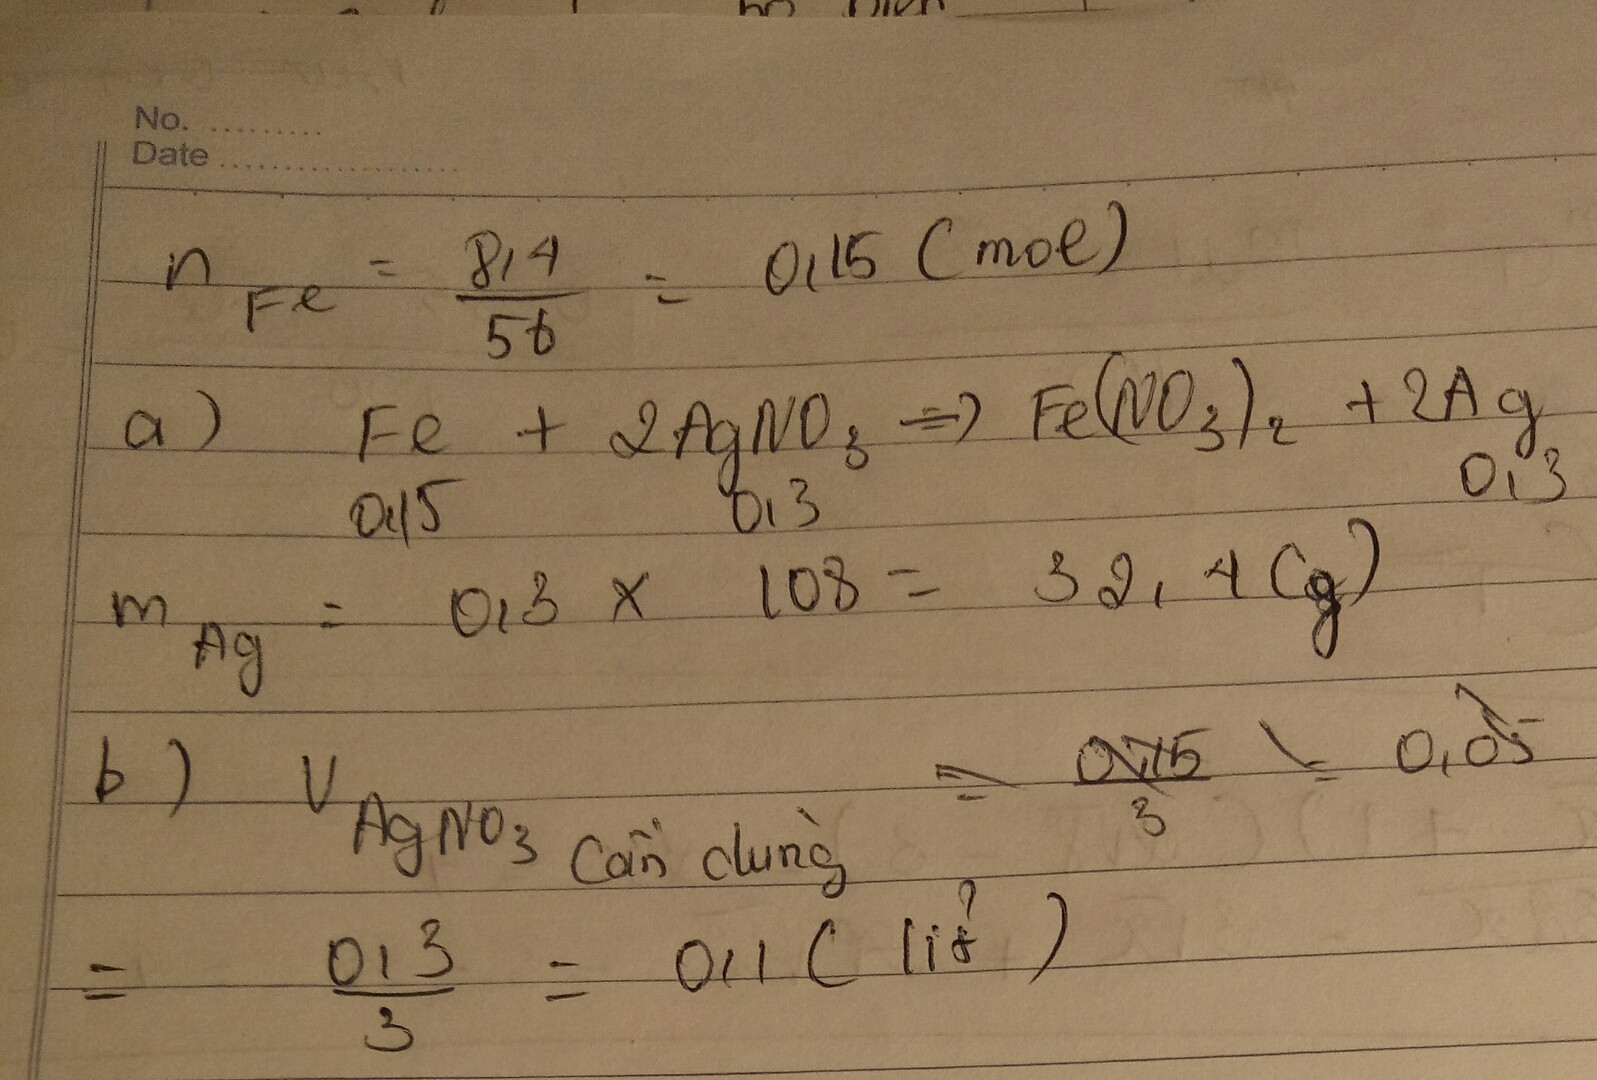 No. .........
Date ..................
n Fe = 8,4/56 = 0,15 (mol)
a) Fe + 2AgNO3 => Fe(NO3)2 + 2Ag
0,15 0,3 0,3
m Ag = 0,3 x 108 = 32,4 (g)
b) V AgNO3 cần dùng = 0,15/3 = 0,05
= 0,3/3 = 0,1 (lít)